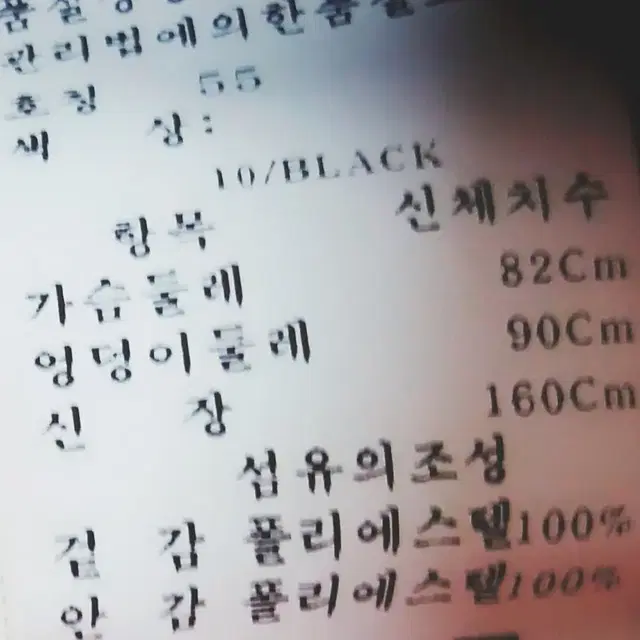 관리법에의한품질표
호칭 55
색 상:
10/BLACK
항목 신체치수
가슴둘레 82Cm
엉덩이둘레 90Cm
신 장 160Cm
섬유의조성
겉 감 폴리에스텔100%
안 감 폴리에스텔100%